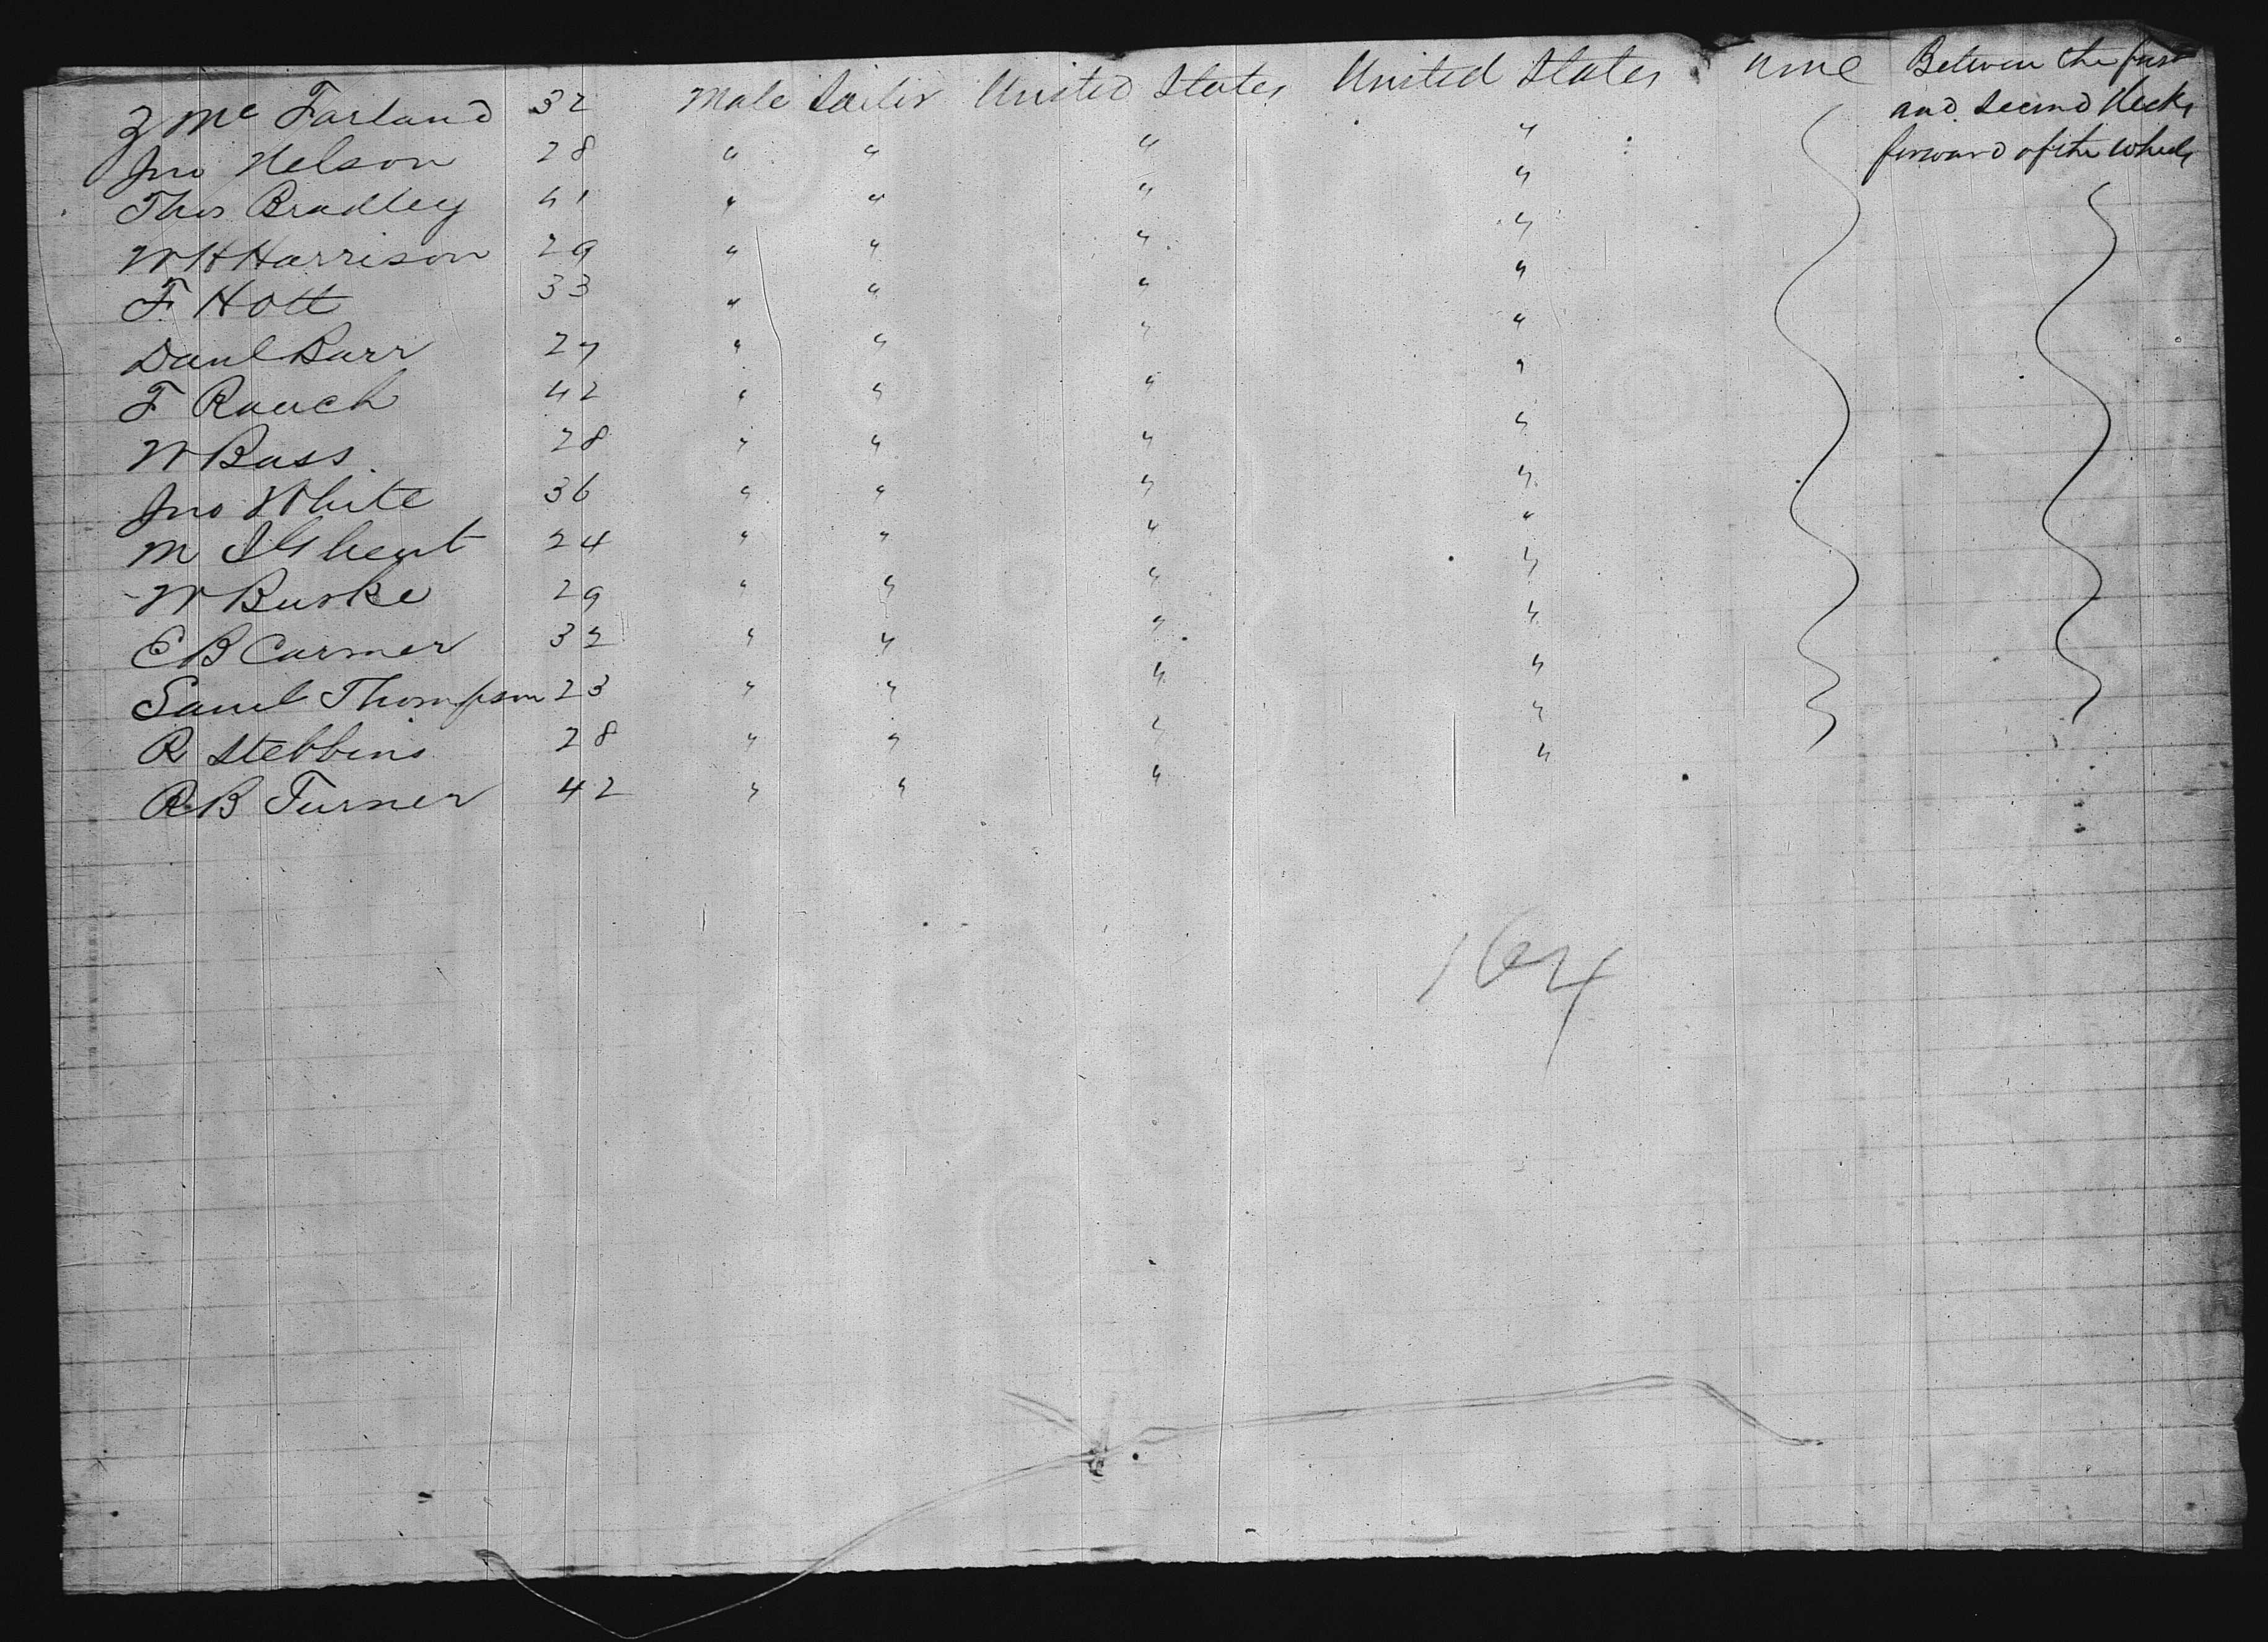 Z McFarland 32 Male Sailor United States United States none Between the first
and second decks
forward of the wheels
Jno Nelson 28 " " " "
Thos Bradley 41 " " " "
W H Harrison 29 " " " "
F. Hott 33 " " " "
Danl Barr 27 " " " "
F Rauch 42 " " " "
W Bass 28 " " " "
Jno White 36 " " " "
M 24 " " " "
W Burke 29 " " " "
E B Carmer 32 " " " "
Saml Thompson 23 " " " "
R Stebbins 28 " " " "
R B Turner 42 " " " "
164